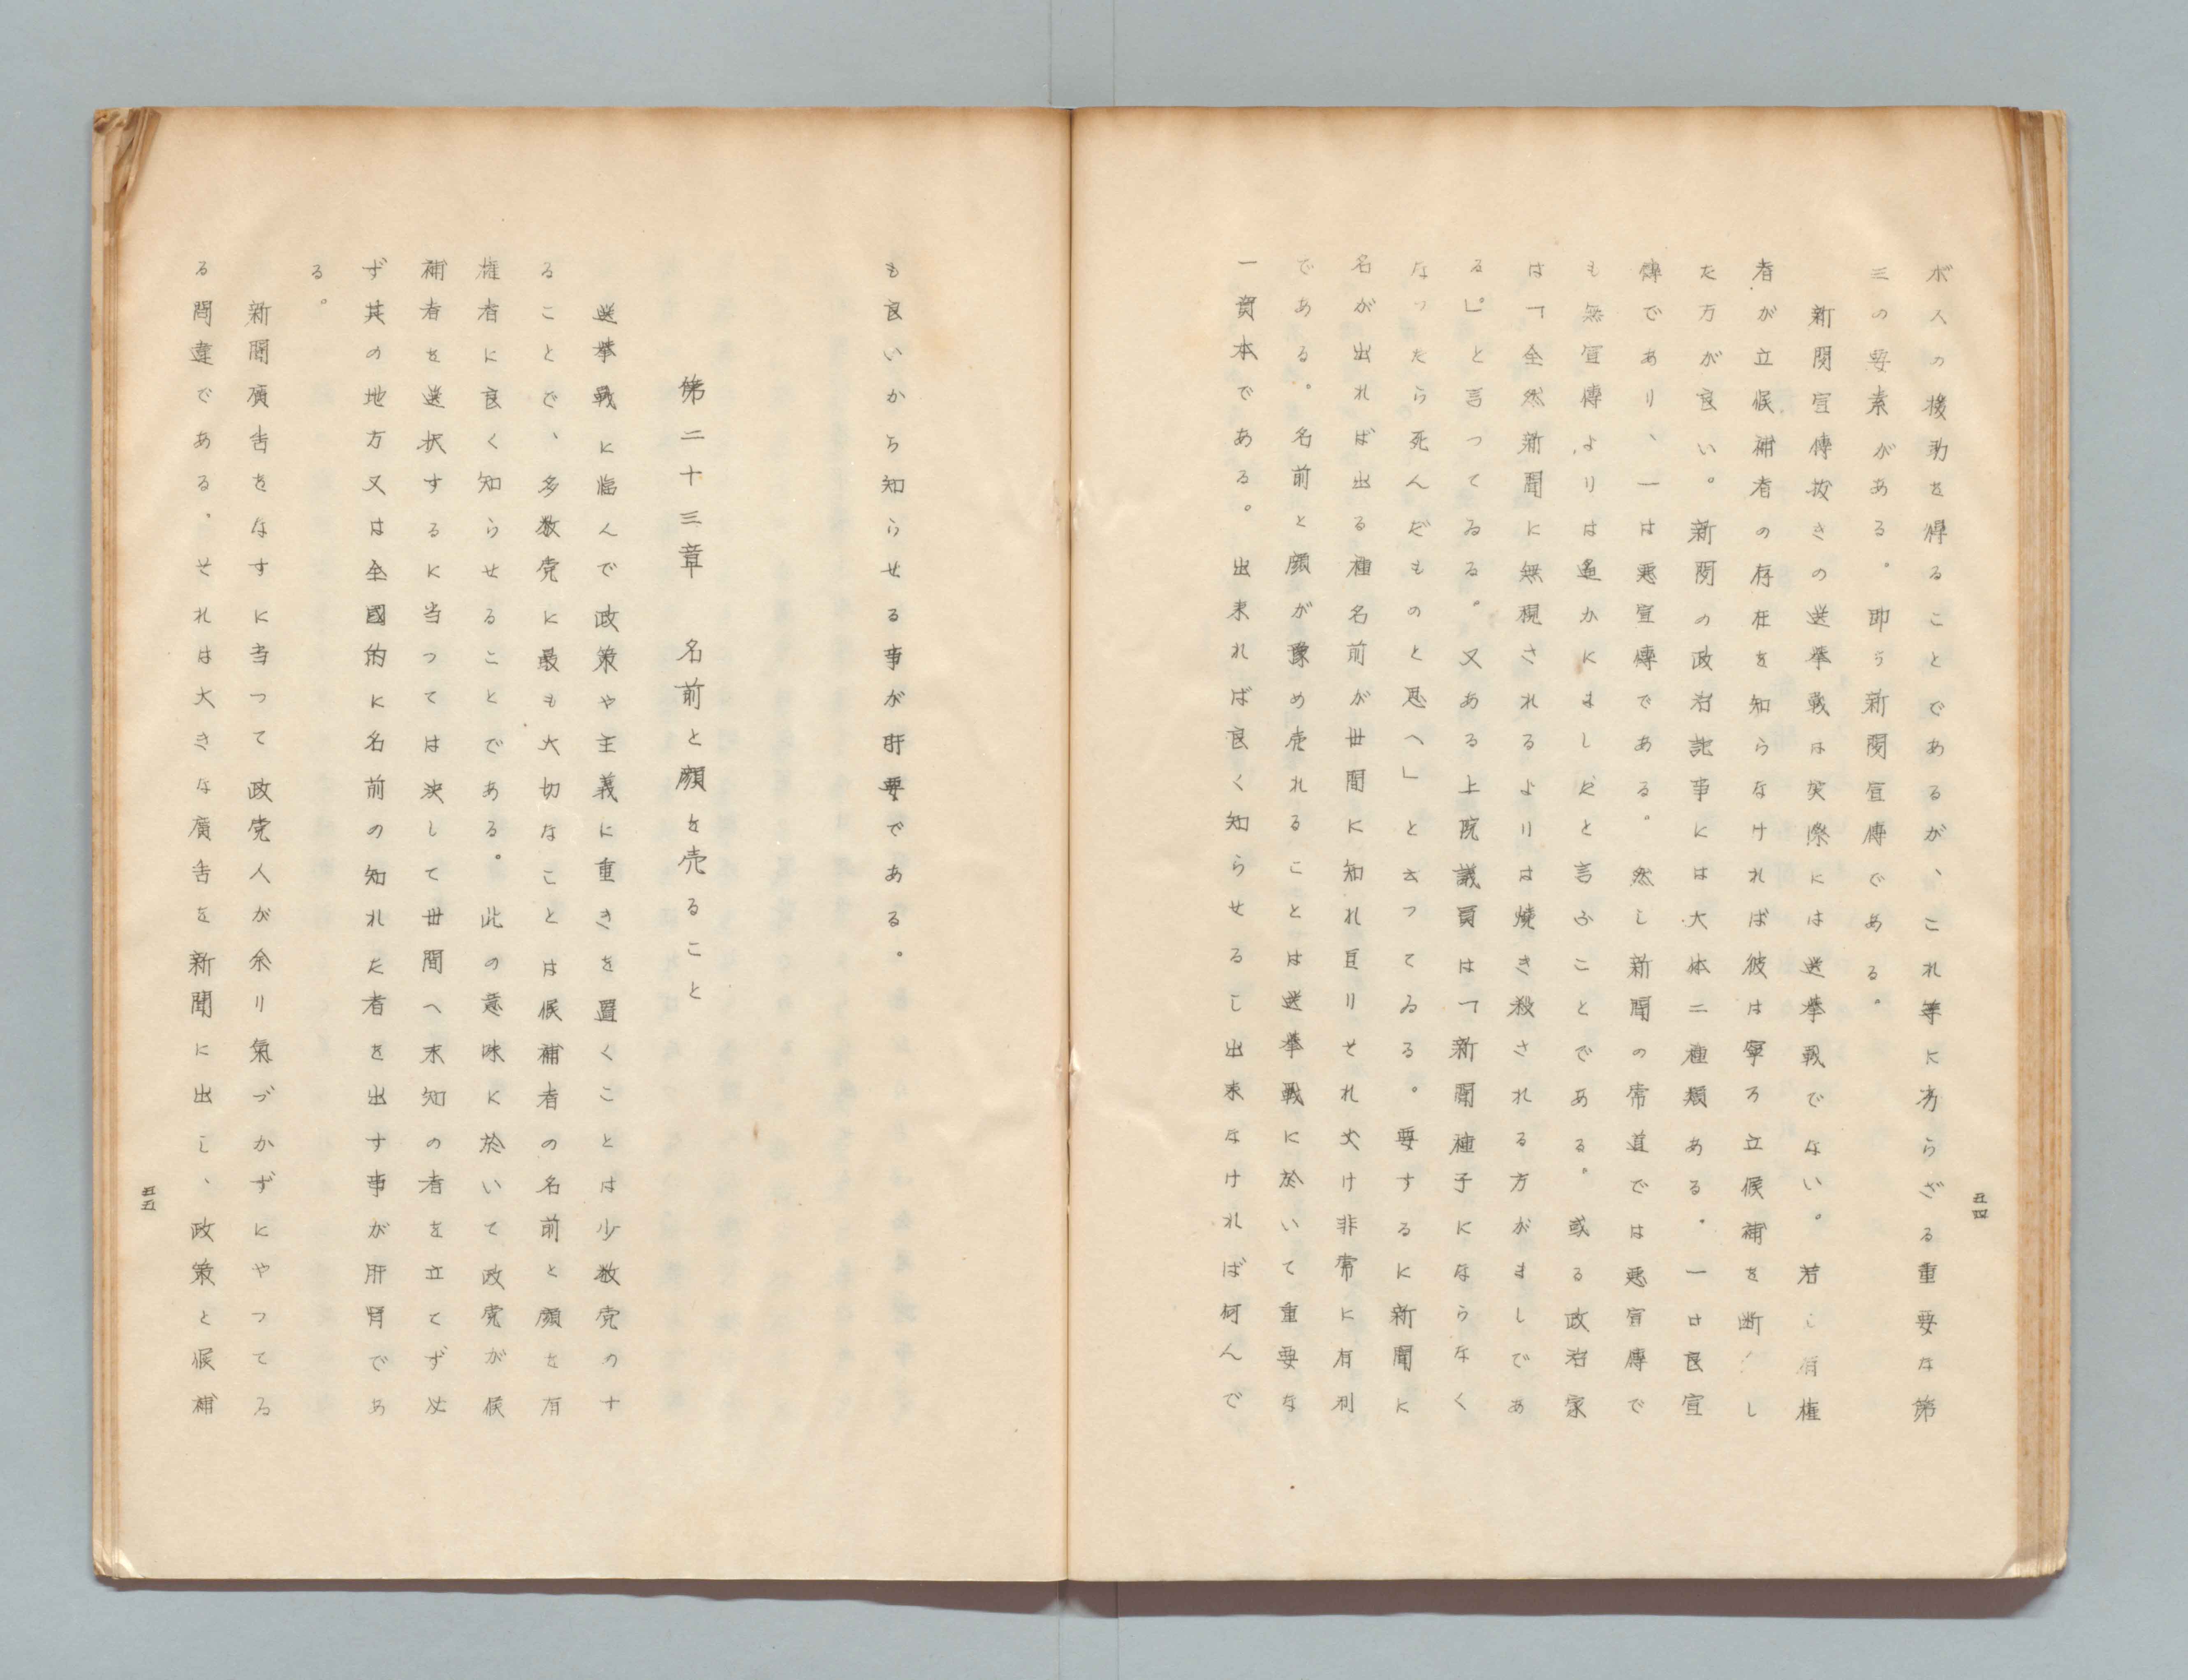 ボスの援助を得ることであるが、これ等に劣らざる重要な第
三の要素がある。即ち新聞宣傳である。
新聞宣傳抜きの選挙戦は実際には選挙戦でない。若し有権
者が立候補者の存在を知らなければ彼は寧ろ立候補を断念し
た方が良い。新聞の政治記事には大体二種類ある。一は良宣
傳であり、一は悪宣傳である。然し新聞の常道では悪宣傳で
も無宣傳よりは遙かにましだと言ふことである。或る政治家
は「全然新聞に無視されるよりは焼き殺される方がましであ
る」。と言つてゐる。又ある上院議員は「新聞種子にならなく
なったら死んだものと思へ」と云つてゐる。要するに新聞に
名が出れば出る種名前が世間に知れ亘りそれ丈け非常に有利
である。名前と顔が豫め売れることは選挙戦に於いて重要な
一資本である。出来れば良く知らせるし出来なければ何んで
五四
も良いから知らせる事が肝要である。
第二十三章 名前と顔を売ること
選挙戦に臨んで政策や主義に重きを置くことは少数党のす
ることで、多数党に最も大切なことは候補者の名前と顔を有
権者に良く知らせることである。此の意味に於いて政党が候
補者を選択するに当つては決して世間へ未知の者を立てず必
ず其の地方又は全國的に名前の知れた者を出す事が肝腎であ
る。
新聞廣告をなすに当つて政党人が余り氣づかずにやつてる
る間違である、それは大きな廣告を新聞に出し、政策と候補
五五